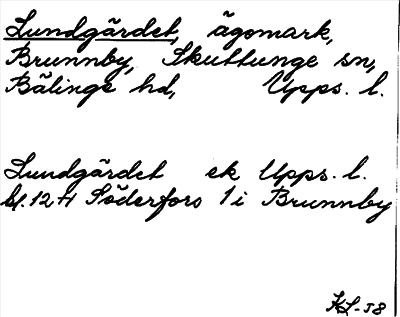 Lundgärdet, ägomark,
Brunnby, Skuttunge sn,
Bälinge hd, Upps. l.
Lundgärdet ek Upps. l.
bl. 12 H Söderfors 1 i Brunnby
KL-58